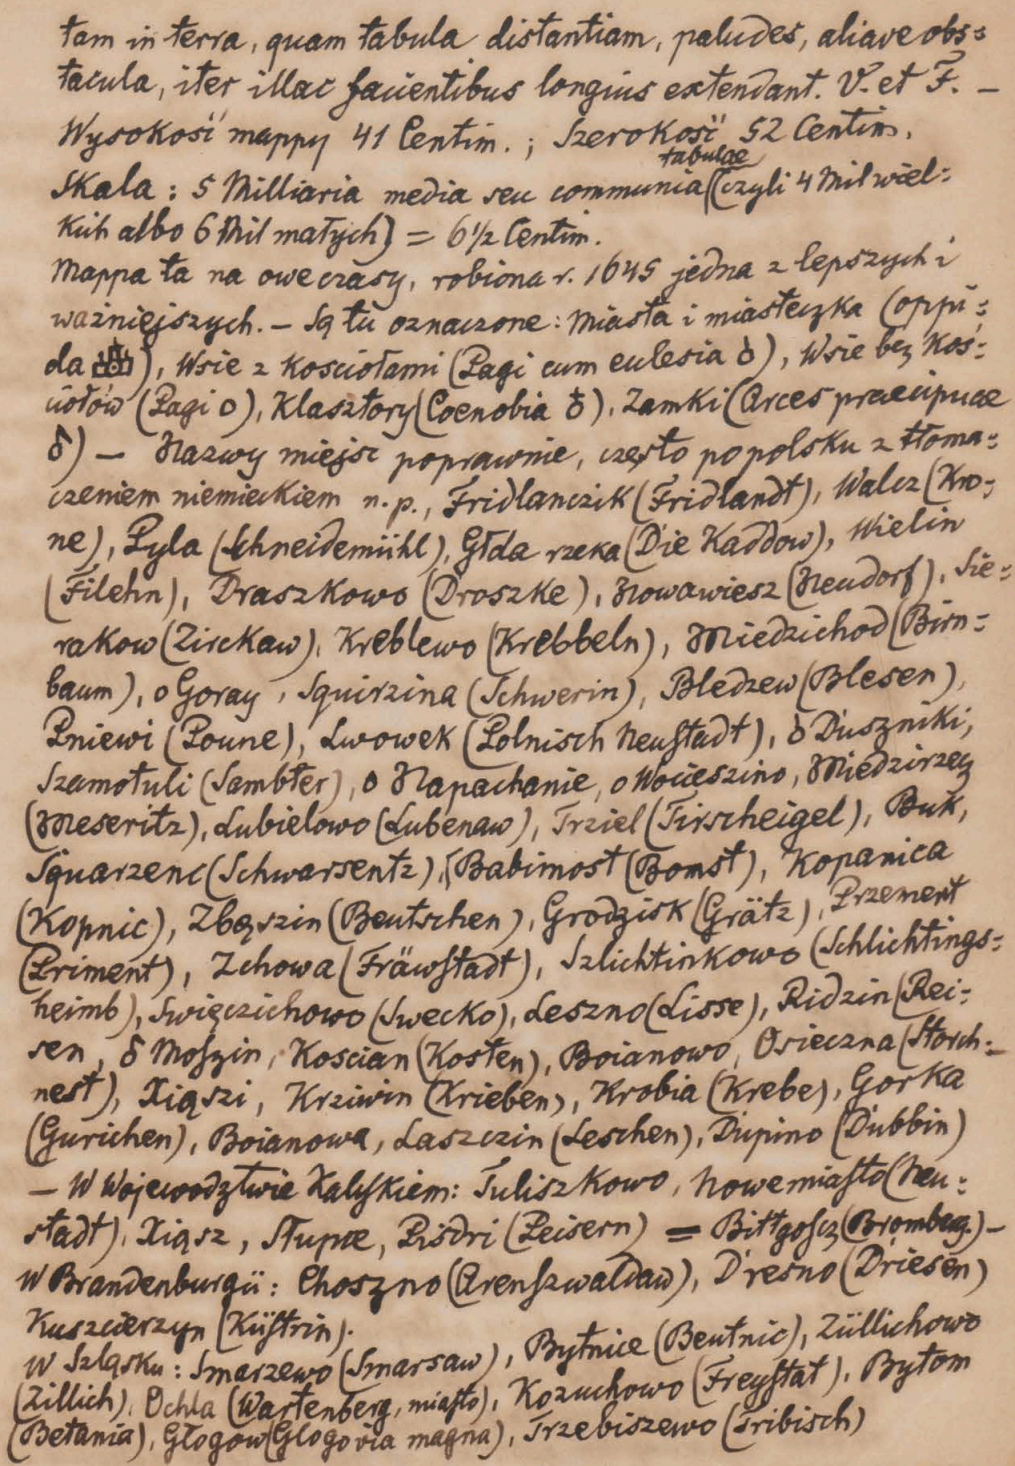 tam in terra, quam tabula distantiam, paludes, aliave obs=
tacula, iter illac facientibus longius extendant. V. et F. —
Wysokość mappy 41 Centim. ; Szerokość 52 Centim.
tabulae
Skala : 5 Milliaria media seu communia (czyli 4 Mil wiel=
kich albo 6 Mil małych) = 6 1/2 Centim.
Mappa ta na owe czasy, robiona r. 1645 jedna z lepszych i
ważniejszych. — Są tu oznaczone : Miasta i miasteczka (oppi=
da ), Wsie z Kościołami (Pagi cum eclesia ♁), Wsie bez Koś=
ciołów (Pagi o), Klasztory (Coenobia ♁), Zamki (Arces praecipuae
δ) — Nazwy miejsc poprawnie, często po polsku z tłoma=
czeniem niemieckiem n. p., Fridlanczik (Fridlandt), Walcz (Kro=
ne), Pyla (Schneidemühl), Głda rzeka (Die Kaddow), Wielin
(Filehn), Draszkowo (Droszke), Nowawiesz (Neudorf), Sie=
rakow (Zirckaw), Kreblewo (Krebbeln), Miedzichod (Birn=
baum), o Goray, Squirzina (Schwerin), Bledzew (Blesen),
Pniewi (Poune), Lwowek (Polnisch Neustadt), ♁ Duszniki,
Szamotuli (Sambter), o Napachanie, o Wocieszino, Miedzirzecz
(Meseritz), Lubielowo (Lubenaw), Trziel (Tirscheigel), Buk,
Squarzenc (Schwarsentz), (Babimost (Bomst), Kopanica
(Kopnic), Zbąszin (Bentschen), Grodzisk (Grätz), Przement
(Priment), Zchowa (Fräwstadt), Szlichtinkowo (Schlichtings=
heimb), Święczichowo (Swecko), Leszno (Lisse), Ridzin (Rei=
sen, δ Moszin, Koscian (Kosten), Boianowo, Osieczna (Storch=
nest), Xiąszi, Krziwin (Krieben), Krobia (Krebe), Gorka
(Gurichen), Boianowa, Laszczin (Leschen), Dupino (Dubbin)
— W Wojewodztwie Kaliskiem : Tuliszkowo, Nowemiasto (Neu=
stadt), Xiąsz, Słupce, Pisdri (Peisern) = Bittgoscz (Bromberg.) —
W Brandenburgii : Choszno (Arenszwaldaw), Dresno (Driesen)
Kuszcierzyn (Küstrin).
W Szląsku : Smarzewo (Smarsaw), Bytnice (Beutnic), Züllichowo
(Zillich), Ochla (Wartenberg, miasto), Kozuchowo (Freystat), Bytom
(Betania), Głogow (Glogovia magna), Trzebiszewo (Tribisch)